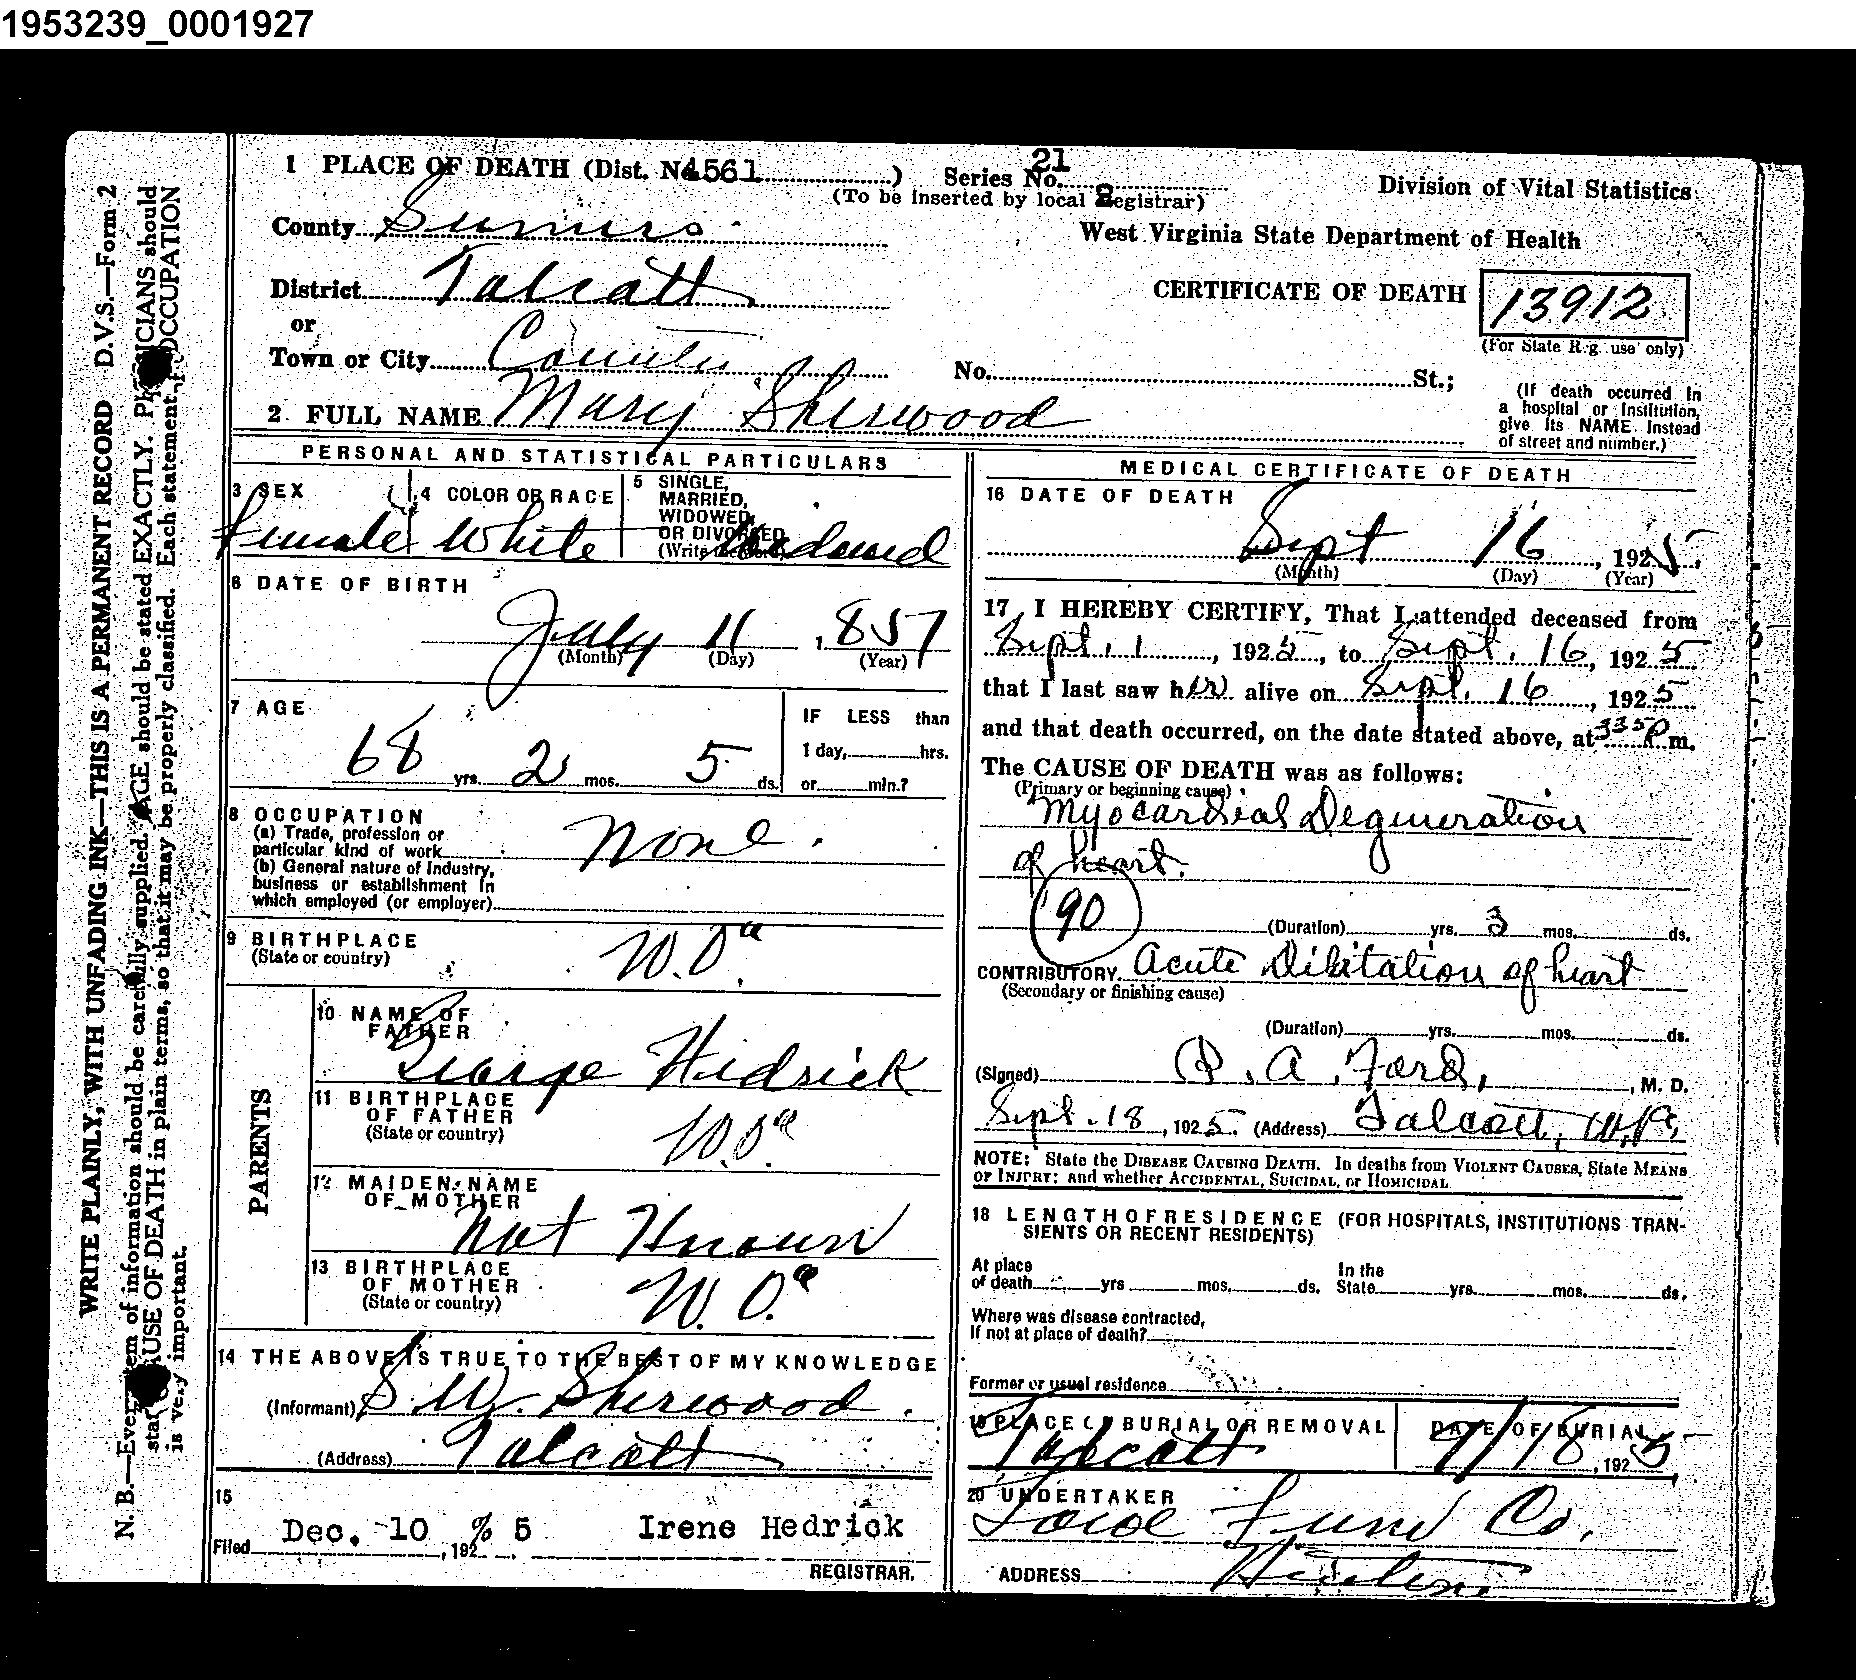 1953239_0001927
1 PLACE OF DEATH (Dist. No. 4561) Series No. 21
(To be inserted by local Registrar)
Division of Vital Statistics
County Summers
West Virginia State Department of Health
District Talcott
CERTIFICATE OF DEATH 13912
(For State Reg. use only)
or
Town or City County
No. St.;
(If death occurred in
a hospital or institution,
give its NAME instead
of street and number.)
2 FULL NAME Mary Sherwood
PERSONAL AND STATISTICAL PARTICULARS
3 SEX
Female
4 COLOR OR RACE
White
5 SINGLE,
MARRIED,
WIDOWED,
OR DIVORCED
(Write the word)
Widowed
6 DATE OF BIRTH
July 11, 1857
(Month) (Day) (Year)
7 AGE
68 yrs. 2 mos. 5 ds.
IF LESS than
1 day, hrs.
or min.?
8 OCCUPATION
(a) Trade, profession or
particular kind of work
None.
(b) General nature of Industry,
business or establishment in
which employed (or employer)
9 BIRTHPLACE
(State or country)
W. Va
PARENTS
10 NAME OF
FATHER
George Hedrick
11 BIRTHPLACE
OF FATHER
(State or country)
W. Va
12 MAIDEN NAME
OF MOTHER
Not Known
13 BIRTHPLACE
OF MOTHER
(State or country)
W. Va
14 THE ABOVE IS TRUE TO THE BEST OF MY KNOWLEDGE
(Informant) S. W. Sherwood.
(Address) Talcott
15
Filed Dec. 10, 1925 Irene Hedrick
REGISTRAR.
MEDICAL CERTIFICATE OF DEATH
16 DATE OF DEATH
Sept 16, 1925.
(Month) (Day) (Year)
17 I HEREBY CERTIFY, That I attended deceased from
Sept. 1, 1925, to Sept. 16, 1925
that I last saw her alive on Sept. 16, 1925
and that death occurred, on the date stated above, at 335 P m.
The CAUSE OF DEATH was as follows:
(Primary or beginning cause)
Myocardial Degeneration
of heart.
90
(Duration) yrs. 3 mos. ds.
CONTRIBUTORY Acute Dilitation of heart
(Secondary or finishing cause)
(Duration) yrs. mos. ds.
(Signed) A. Ford, M. D.
Sept. 18, 1925. (Address) Talcott, W. Va,
NOTE: State the DISEASE CAUSING DEATH. In deaths from VIOLENT CAUSES, State MEANS
OF INJURY; and whether ACCIDENTAL, SUICIDAL, or HOMICIDAL
18 LENGTH OF RESIDENCE (FOR HOSPITALS, INSTITUTIONS TRAN-
SIENTS OR RECENT RESIDENTS)
At place
of death yrs mos. ds.
In the
State yrs. mos. ds.
Where was disease contracted,
If not at place of death?
Former or usual residence
19 PLACE OF BURIAL OR REMOVAL
Talcott
DATE OF BURIAL
9/18, 1925
20 UNDERTAKER
Fun Co.
ADDRESS Hinton
WRITE PLAINLY, WITH UNFADING INK—THIS IS A PERMANENT RECORD D.V.S.—Form 2
N. B.—Every item of information should be carefully supplied. AGE should be stated EXACTLY. PHYSICIANS should
state CAUSE OF DEATH in plain terms, so that it may be properly classified. Each statement of OCCUPATION
is very important.